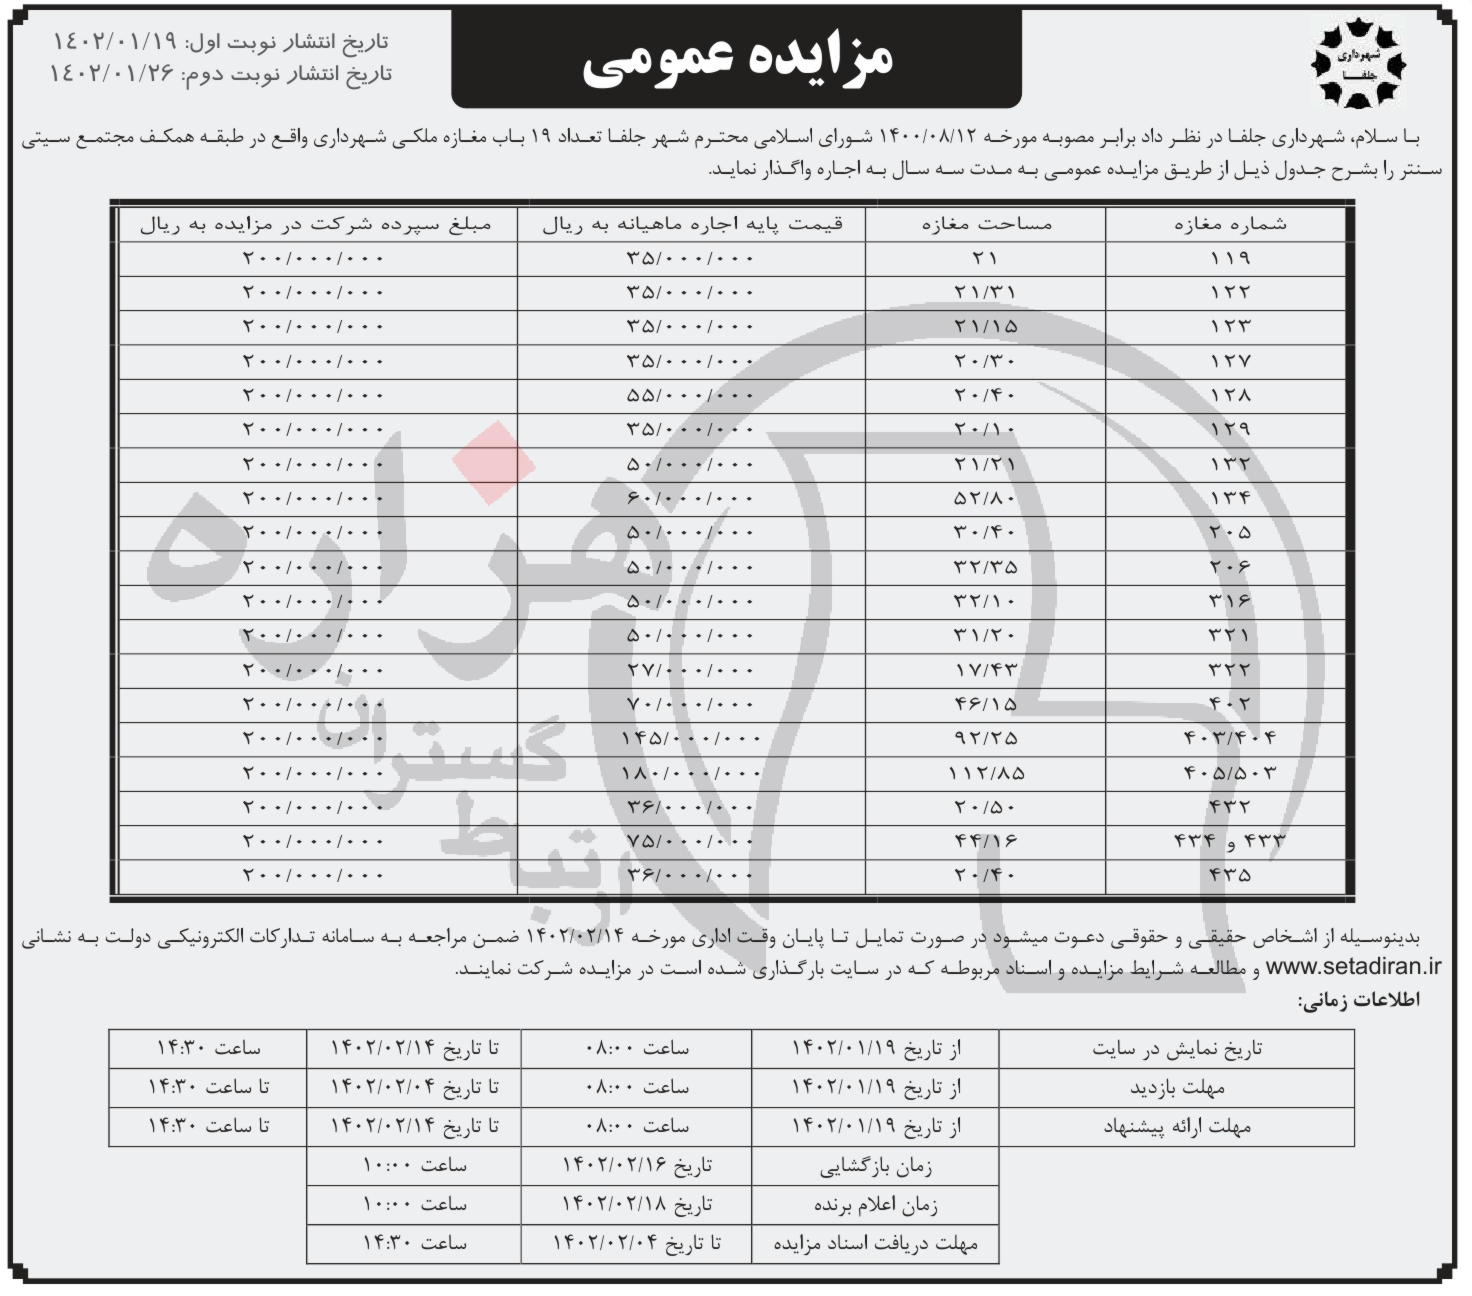 شهرداری
جلفا
مزایده عمومی
تاریخ انتشار نوبت اول: ۱۴۰۲/۰۱/۱۹
تاریخ انتشار نوبت دوم: ۱۴۰۲/۰۱/۲۶
با سلام، شهرداری جلفا در نظر داد برابر مصوبه مورخه ۱۴۰۰/۰۸/۱۲ شورای اسلامی محترم شهر جلفا تعداد ۱۹ باب مغازه ملکی شهرداری واقع در طبقه همکف مجتمع سیتی
سنتر را بشرح جدول ذیل از طریق مزایده عمومی به مدت سه سال به اجاره واگذار نماید.
شماره مغازه مساحت مغازه قیمت پایه اجاره ماهیانه به ریال مبلغ سپرده شرکت در مزایده به ریال
۱۱۹ ۲۱ ۳۵/۰۰۰/۰۰۰ ۲۰۰/۰۰۰/۰۰۰
۱۲۲ ۲۱/۳۱ ۳۵/۰۰۰/۰۰۰ ۲۰۰/۰۰۰/۰۰۰
۱۲۳ ۲۱/۱۵ ۳۵/۰۰۰/۰۰۰ ۲۰۰/۰۰۰/۰۰۰
۱۲۷ ۲۰/۳۰ ۳۵/۰۰۰/۰۰۰ ۲۰۰/۰۰۰/۰۰۰
۱۲۸ ۲۰/۴۰ ۵۵/۰۰۰/۰۰۰ ۲۰۰/۰۰۰/۰۰۰
۱۲۹ ۲۰/۱۰ ۳۵/۰۰۰/۰۰۰ ۲۰۰/۰۰۰/۰۰۰
۱۳۲ ۲۱/۲۱ ۵۰/۰۰۰/۰۰۰ ۲۰۰/۰۰۰/۰۰۰
۱۳۴ ۵۲/۸۰ ۶۰/۰۰۰/۰۰۰ ۲۰۰/۰۰۰/۰۰۰
۲۰۵ ۳۰/۴۰ ۵۰/۰۰۰/۰۰۰ ۲۰۰/۰۰۰/۰۰۰
۲۰۶ ۳۲/۳۵ ۵۰/۰۰۰/۰۰۰ ۲۰۰/۰۰۰/۰۰۰
۳۱۶ ۳۲/۱۰ ۵۰/۰۰۰/۰۰۰ ۲۰۰/۰۰۰/۰۰۰
۳۲۱ ۳۱/۲۰ ۵۰/۰۰۰/۰۰۰ ۲۰۰/۰۰۰/۰۰۰
۳۲۲ ۱۷/۴۳ ۲۷/۰۰۰/۰۰۰ ۲۰۰/۰۰۰/۰۰۰
۴۰۲ ۴۶/۱۵ ۷۰/۰۰۰/۰۰۰ ۲۰۰/۰۰۰/۰۰۰
۴۰۳/۴۰۴ ۹۲/۲۵ ۱۴۵/۰۰۰/۰۰۰ ۲۰۰/۰۰۰/۰۰۰
۴۰۵/۵۰۳ ۱۱۲/۸۵ ۱۸۰/۰۰۰/۰۰۰ ۲۰۰/۰۰۰/۰۰۰
۴۳۲ ۲۰/۵۰ ۳۶/۰۰۰/۰۰۰ ۲۰۰/۰۰۰/۰۰۰
۴۳۳ و ۴۳۴ ۴۴/۱۶ ۷۵/۰۰۰/۰۰۰ ۲۰۰/۰۰۰/۰۰۰
۴۳۵ ۲۰/۴۰ ۳۶/۰۰۰/۰۰۰ ۲۰۰/۰۰۰/۰۰۰
هزاره
گستران
ارتباط
بدینوسیله از اشخاص حقیقی و حقوقی دعوت میشود در صورت تمایل تا پایان وقت اداری مورخه ۱۴۰۲/۰۲/۱۴ ضمن مراجعه به سامانه تدارکات الکترونیکی دولت به نشانی
www.setadiran.ir و مطالعه شرایط مزایده و اسناد مربوطه که در سایت بارگذاری شده است در مزایده شرکت نمایند.
اطلاعات زمانی:
تاریخ نمایش در سایت از تاریخ ۱۴۰۲/۰۱/۱۹ ساعت ۰۸:۰۰ تا تاریخ ۱۴۰۲/۰۲/۱۴ ساعت ۱۴:۳۰
مهلت بازدید از تاریخ ۱۴۰۲/۰۱/۱۹ ساعت ۰۸:۰۰ تا تاریخ ۱۴۰۲/۰۲/۰۴ تا ساعت ۱۴:۳۰
مهلت ارائه پیشنهاد از تاریخ ۱۴۰۲/۰۱/۱۹ ساعت ۰۸:۰۰ تا تاریخ ۱۴۰۲/۰۲/۱۴ تا ساعت ۱۴:۳۰
زمان بازگشایی تاریخ ۱۴۰۲/۰۲/۱۶ ساعت ۱۰:۰۰
زمان اعلام برنده تاریخ ۱۴۰۲/۰۲/۱۸ ساعت ۱۰:۰۰
مهلت دریافت اسناد مزایده تا تاریخ ۱۴۰۲/۰۲/۰۴ ساعت ۱۴:۳۰